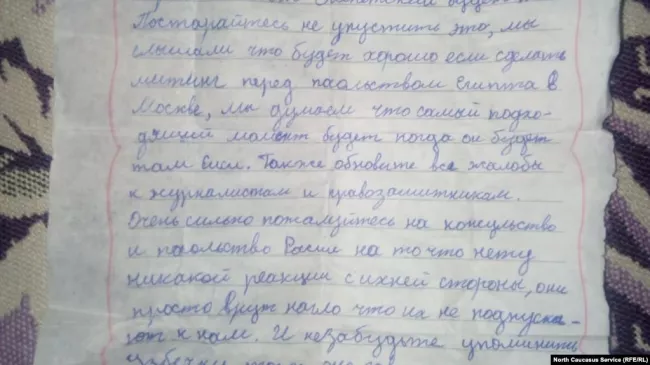 Постарайтесь не упустить это, мы
слышали что будет хорошо если сделать
митинг перед посольством Египта в
Москве, мы думаем что самый подхо-
дящий момент будет когда он будет
там Сиси. Также обновите все жалобы
к журналистам и правозащитникам.
Очень сильно пожалуйтесь на консульство
и посольство России на то что нету
никакой реакции с ихней стороны, они
просто врут нагло что их не подпуска-
ют к нам. И незабудьте упоминить
North Caucasus Service (RFE/RL)